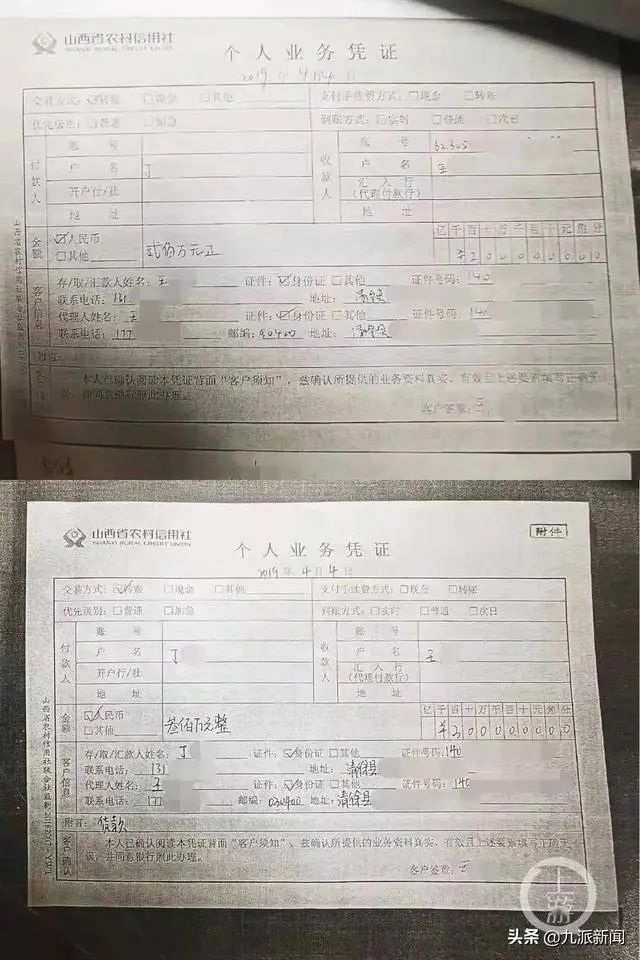 山西省农村信用社
SHANXI RURAL CREDIT UNION
个人业务凭证
2019年4月4日
交易方式：☑转账 □现金 □其他 支付手续费方式：□现金 □转账
优先级别：□普通 □加急 到账方式：□实时 □普通 □次日
付款人 账号 收款人 账号 62305
户名 丁 户名 王
开户行/社 汇入行（代理付款行）
地址 地址
亿千百十万千百十元角分
金额 ☑人民币 □其他 贰佰万元正 ¥200000000
客户信息 存/取/汇款人姓名：王 证件：☑身份证 □其他 证件号码：140
联系电话：131 地址：清徐县
代理人姓名：王 证件：☑身份证 □其他 证件号码：140
联系电话：177 邮编： 地址：清徐县
附言：
本人已确认阅读本凭证背面“客户须知”，兹确认所提供的业务资料真实、有效且上述要素填写正确无
误，并同意银行照此办理。
客户签章：王
山西省农村信用社联合社监制
山西省农村信用社
SHANXI RURAL CREDIT UNION
附件
个人业务凭证
2019年4月4日
交易方式：☑转账 □现金 □其他 支付手续费方式：□现金 □转账
优先级别：□普通 □加急 到账方式：□实时 □普通 □次日
付款人 账号 收款人 账号
户名 丁 户名 王
开户行/社 汇入行（代理付款行）
地址 地址
亿千百十万千百十元角分
金额 ☑人民币 □其他 叁佰万元整 ¥300000000
客户信息 存/取/汇款人姓名：丁 证件：☑身份证 □其他 证件号码：140
联系电话：131 地址：清徐县
代理人姓名：王 证件：☑身份证 □其他 证件号码：140
联系电话：177 邮编：030400 地址：清徐县
附言：货款
客户确认 本人已确认阅读本凭证背面“客户须知”，兹确认所提供的业务资料真实、有效且上述要素填写正确无
误，并同意银行照此办理。
客户签章：王
山西省农村信用社联合社监制
上游
头条 @九派新闻